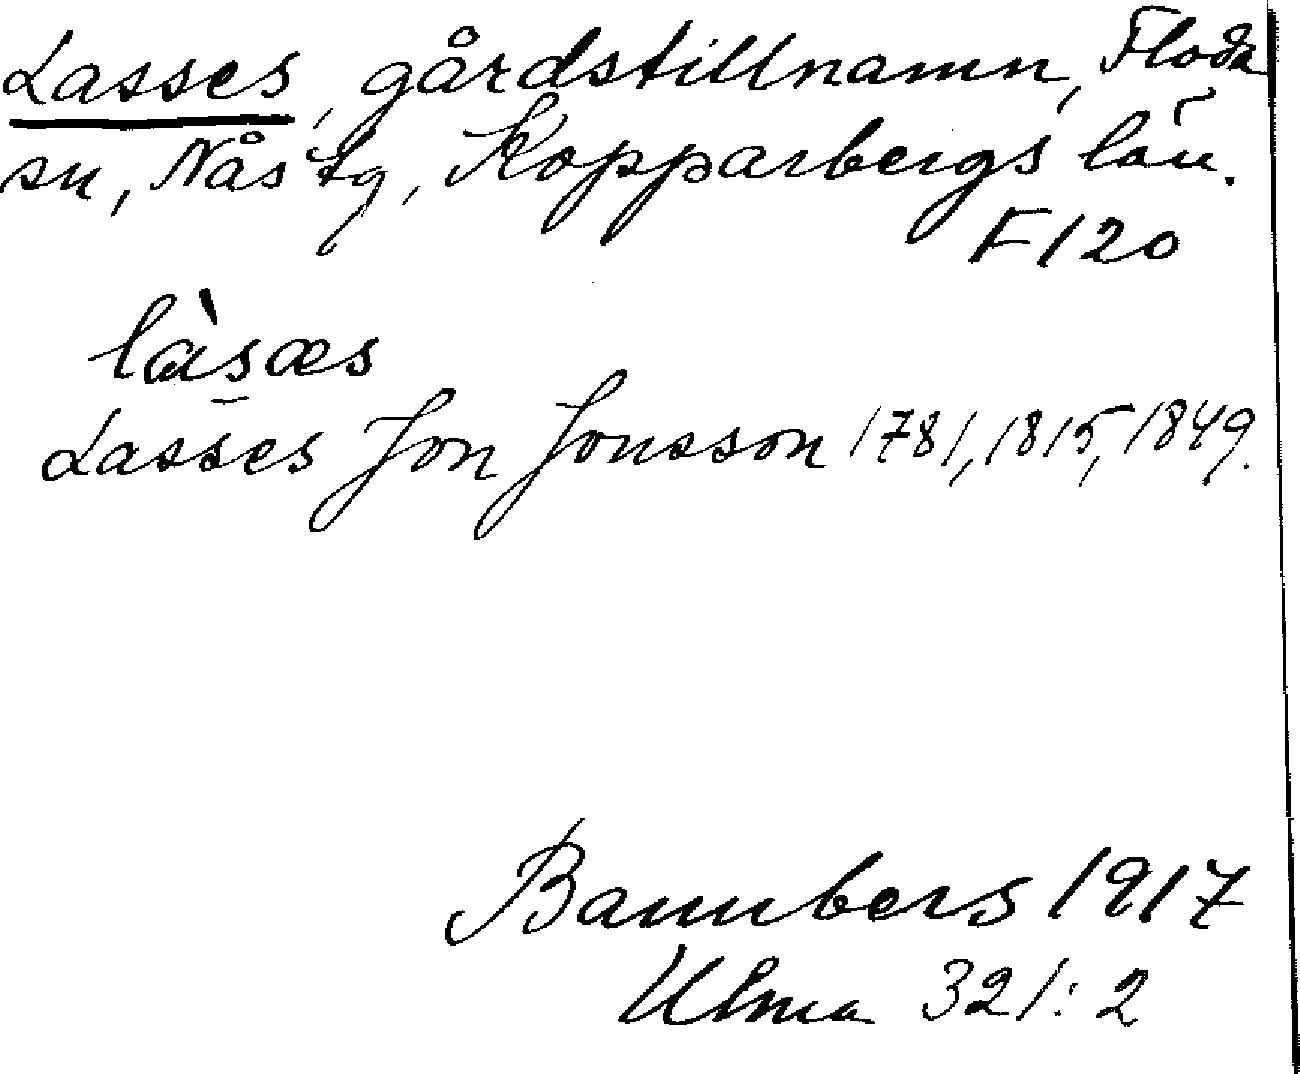 Lasses, gårdstillnamn, Floda
sn, Nås tg, Kopparbergs län.
F120
làs̠æs
Lasses Jon Jonsson 1781, 1815, 1849.
Bannbers 1917
Ulma 321:2